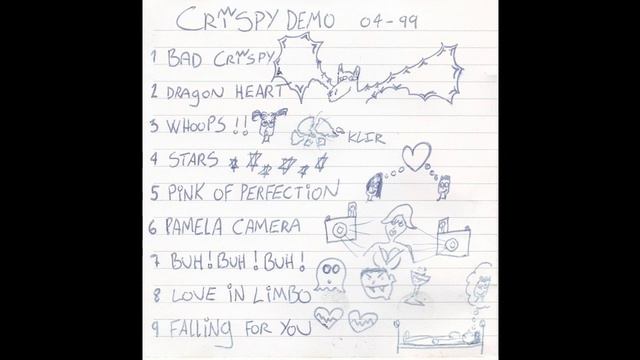 CRISPY DEMO 04-99
1 BAD CRISPY
2 DRAGON HEART
3 WHOOPS!! KLIR
4 STARS
5 PINK OF PERFECTION
6 PAMELA CAMERA
7 BUH! BUH! BUH!
8 LOVE IN LIMBO
9 FALLING FOR YOU